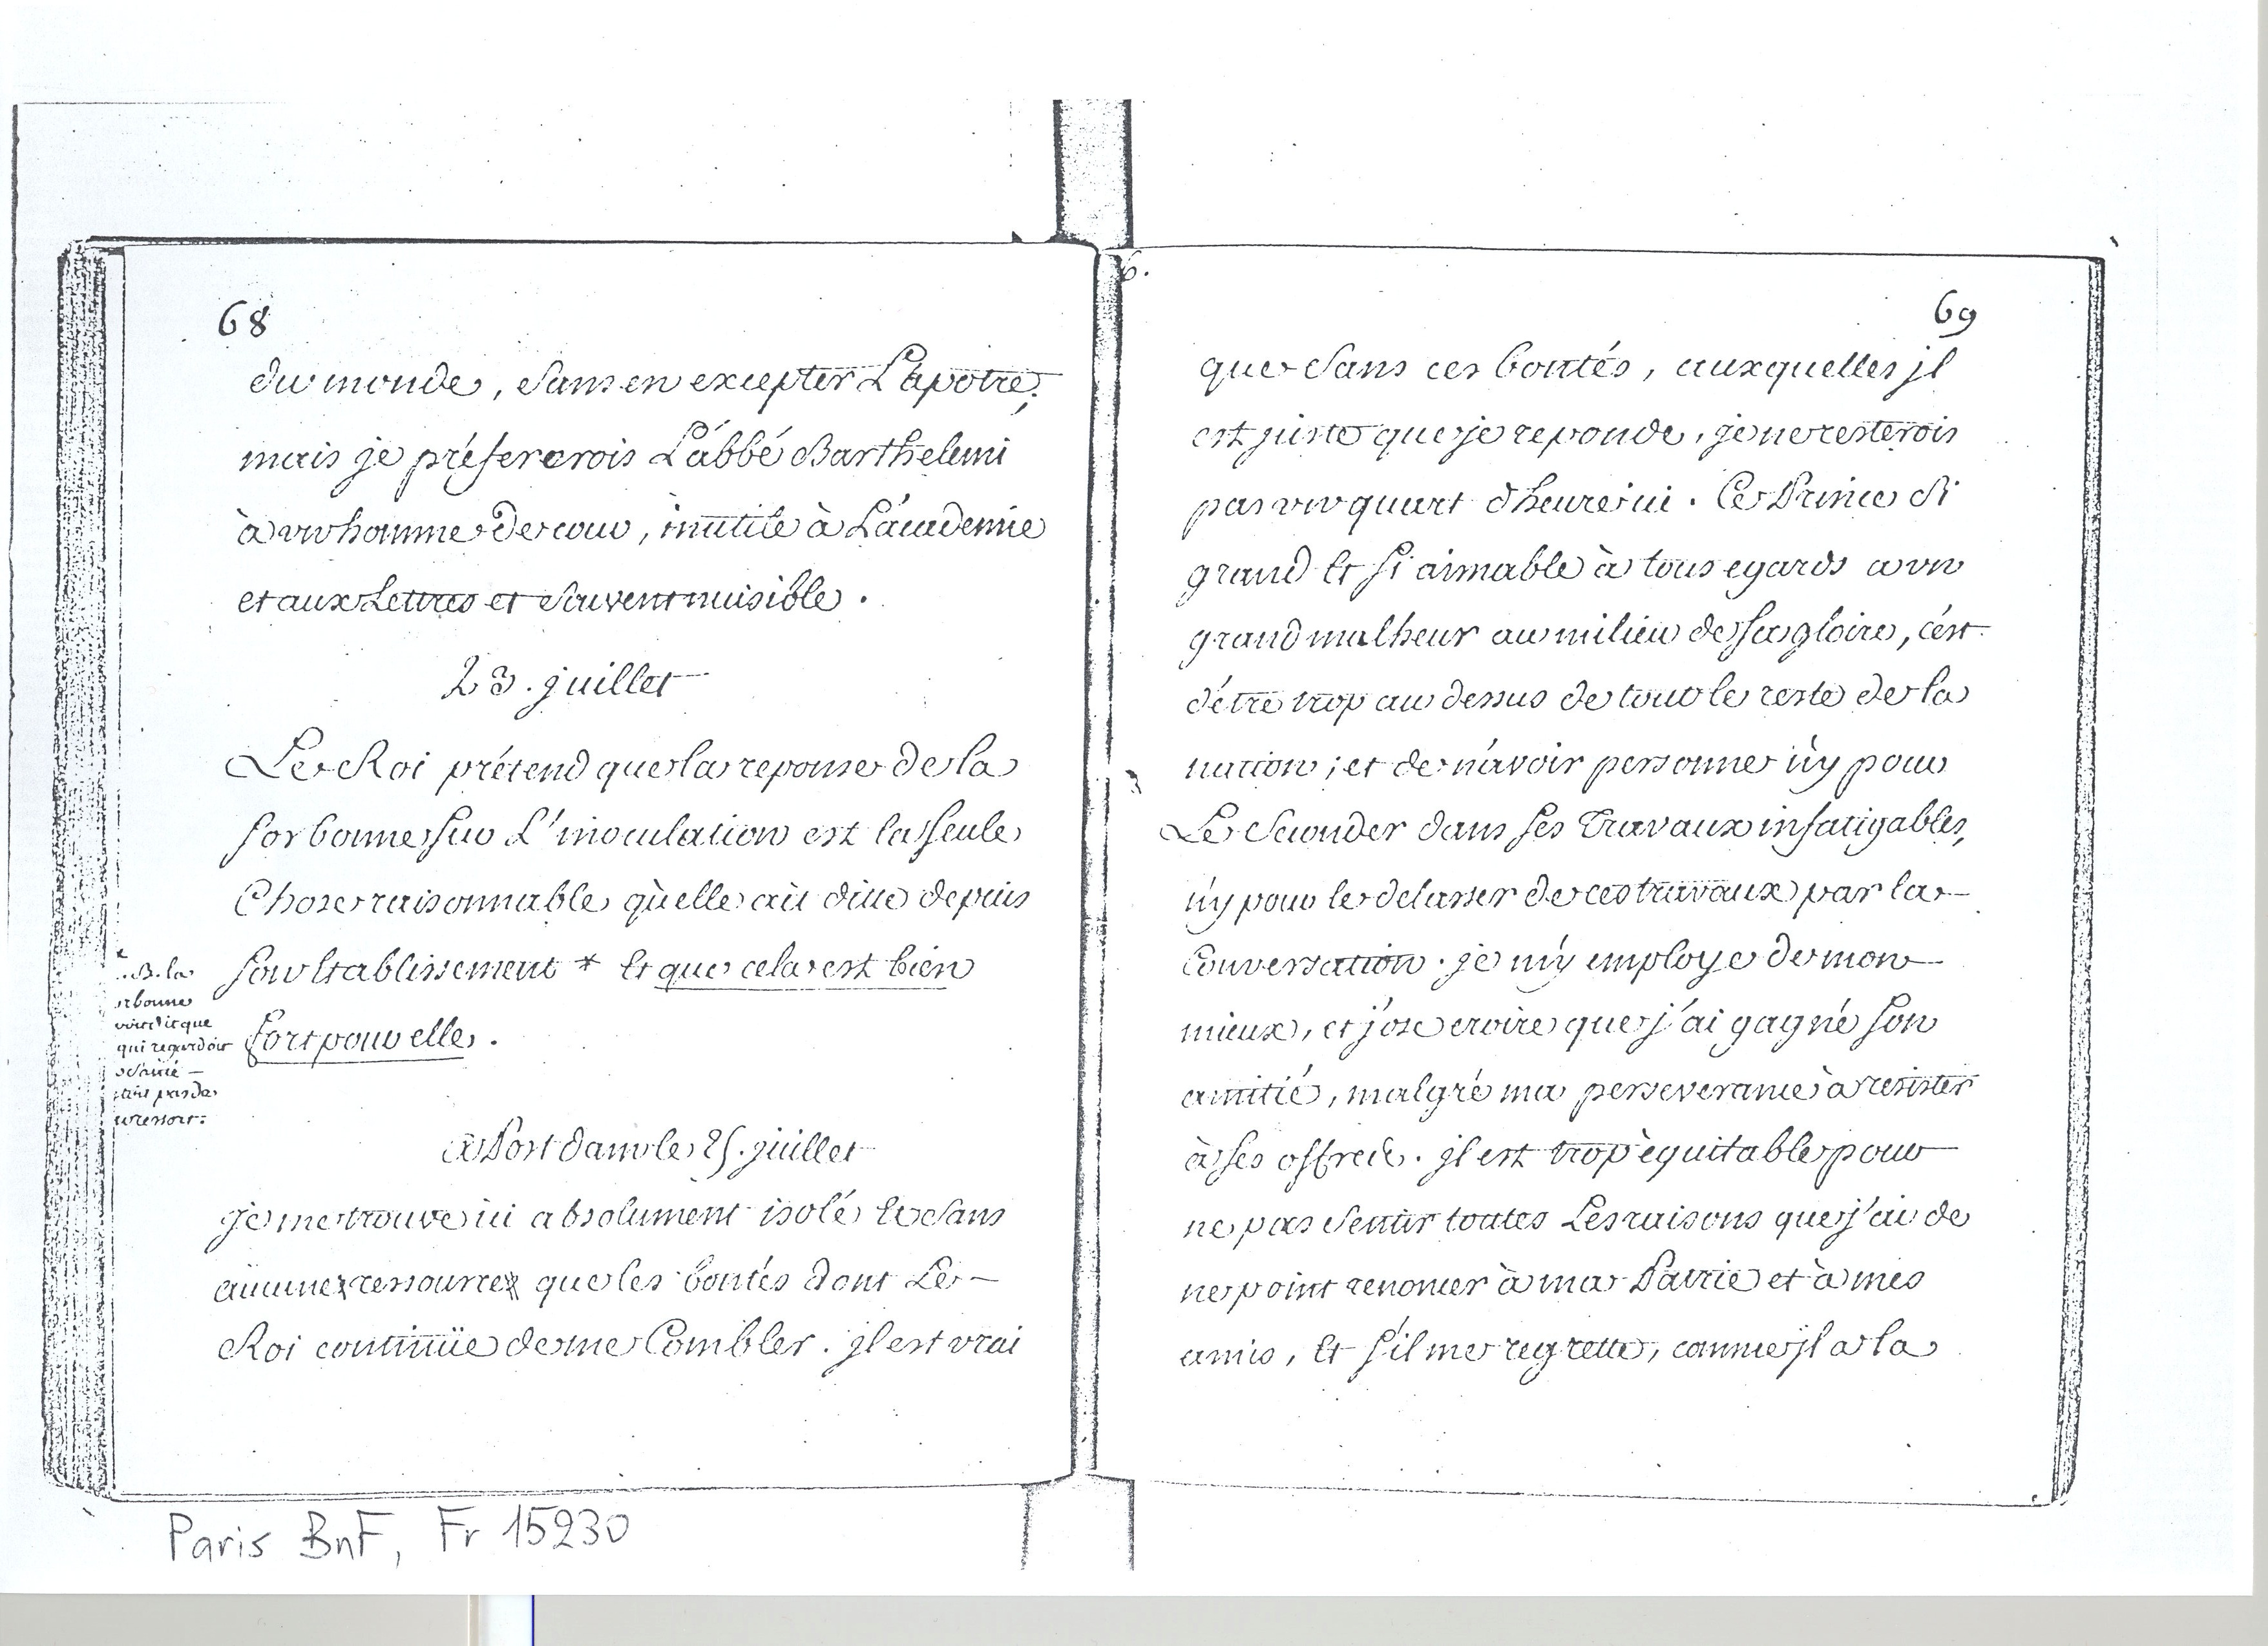 68
du monde, sans en excepter L'apotre;
mais je préfererois L'abbé Barthelemi
à un homme de cour, inutile à L'academie
et aux Lettres et souvent nuisible.
23. juillet
Le Roi prétend que la reponse de la
sorbonne sur L'inoculation est la seule
Chose raisonnable qu'elle ait ditte depuis
son Etablissement * Et que cela est bien
fort pour elle.
*
.B. la
rbonne
dit que
qui regardoit
santé
pas de
ressort.
à Postdam le 25. juillet
je me trouve ici absolument isolé Et sans
aucune ressource que les bontés dont Le
Roi continüe de me Combler. jl est vrai
6.
69
que sans ces bontés, auxquelles jl
est juste que je reponde, je ne resterois
pas un quart d'heure ici. Ce Prince si
grand Et si aimable à tous egards a un
grand malheur au milieu de sa gloire, c'est
d'être trop au dessus de tout le reste de la
nation; et de n'avoir personne n'y pour
Le Seconder dans ses Travaux infatigables,
n'y pour le delasser de ces travaux par la
Conversation. je m'y employe de mon
mieux, et j'ose croire que j'ai gagné son
amitié, malgré ma perseverance à resister
à ses offres. jl est trop equitable pour
ne pas sentir toutes Les raisons que j'ai de
ne point renoncer à ma Patrie et à mes
amis, Et s'il me regrette, comme jl a la
Paris BnF, Fr 15230